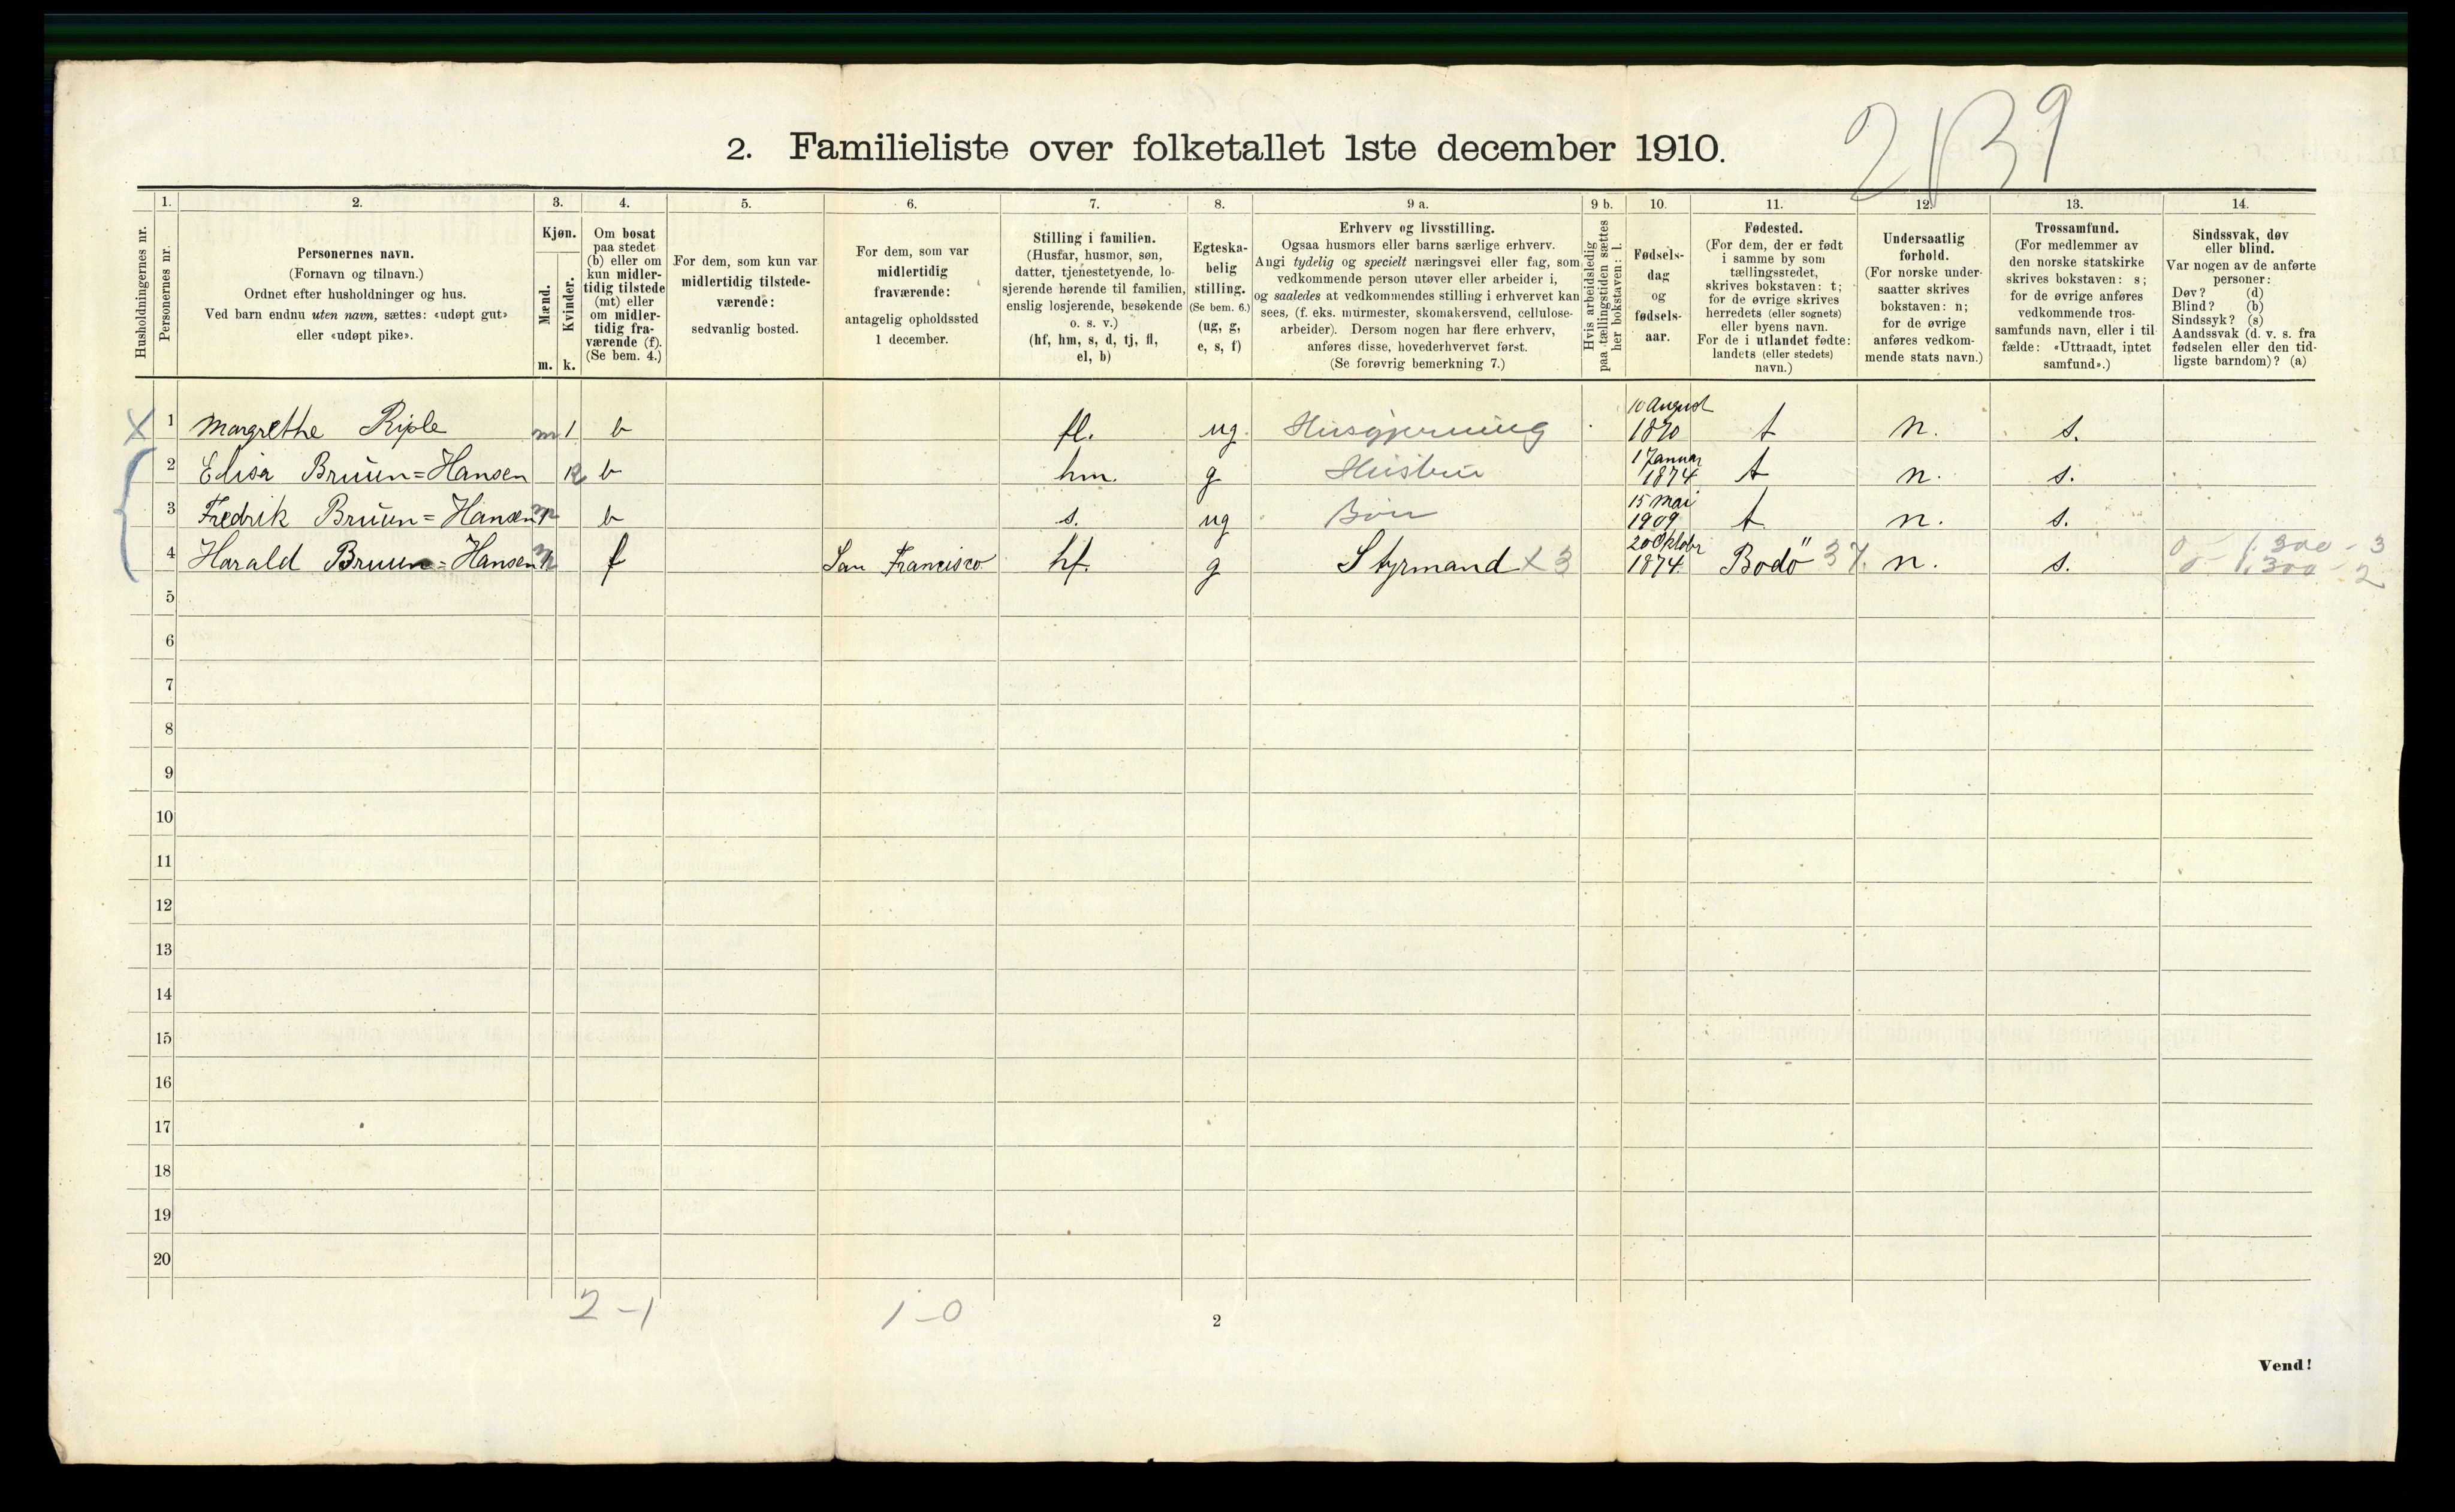 2139
2. Familieliste over folketallet 1ste december 1910.
1. 2. 3. 4. 5. 6. 7. 8. 9 a. 9 b. 10. 11. 12. 13. 14.
Husholdningernes nr.
Personernes nr.
Personernes navn.
(Fornavn og tilnavn.)
Ordnet efter husholdninger og hus.
Ved barn endnu uten navn, sættes: «udøpt gut»
eller «udøpt pike».
Kjøn.
Mænd.
m.
Kvinder.
k.
Om bosat
paa stedet
(b) eller om
kun midler-
tidig tilstede
(mt) eller
om midler-
tidig fra-
værende (f).
(Se bem. 4.)
For dem, som kun var
midlertidig tilstede-
værende:
sedvanlig bosted.
For dem, som var
midlertidig
fraværende:
antagelig opholdssted
1 december.
Stilling i familien.
(Husfar, husmor, søn,
datter, tjenestetyende, lo-
sjerende hørende til familien,
enslig losjerende, besøkende
o. s. v.)
(hf, hm, s, d, tj, fl,
el, b)
Egteska-
belig
stilling.
(Se bem. 6.)
(ug, g,
e, s, f)
Erhverv og livsstilling.
Ogsaa husmors eller barns særlige erhverv.
Angi tydelig og specielt næringsvei eller fag, som
vedkommende person utøver eller arbeider i,
og saaledes at vedkommendes stilling i erhvervet kan
sees, (f. eks. murmester, skomakersvend, cellulose-
arbeider). Dersom nogen har flere erhverv,
anføres disse, hovederhvervet først.
(Se forøvrig bemerkning 7.)
Hvis arbeidsledig
paa tællingstiden sættes
her bokstaven: l.
Fødsels-
dag
og
fødsels-
aar.
Fødested.
(For dem, der er født
i samme by som
tællingsstedet,
skrives bokstaven: t;
for de øvrige skrives
herredets (eller sognets)
eller byens navn.
For de i utlandet fødte:
landets (eller stedets)
navn.)
Undersaatlig
forhold.
(For norske under-
saatter skrives
bokstaven: n;
for de øvrige
anføres vedkom-
mende stats navn.)
Trossamfund.
(For medlemmer av
den norske statskirke
skrives bokstaven: s;
for de øvrige anføres
vedkommende tros-
samfunds navn, eller i til-
fælde: «Uttraadt, intet
samfund».)
Sindssvak, døv
eller blind.
Var nogen av de anførte
personer:
Døv? (d)
Blind? (b)
Sindssyk? (s)
Aandssvak (d. v. s. fra
fødselen eller den tid-
ligste barndom)? (a)
X 1 Margrethe Riple 1 b fl. ug. Husgjerning 10 August 1870 t n. s.
2 Elisa Bruun=Hansen b hm. g Hustru 1 Januar 1874 t n. s.
3 Fredrik Bruun=Hansen b s. ug Barn 15 Mai 1909 t n. s.
4 Harald Bruun=Hansen f San Francisco hf. g Styrmand X 3 20 Oktobr 1874 Bodö 37. n. s. 0 - 1.300 - 3
0 - 1.300 - 2
5
6
7
8
9
10
11
12
13
14
15
16
17
18
19
20
2-1 1-0
2
Vend!